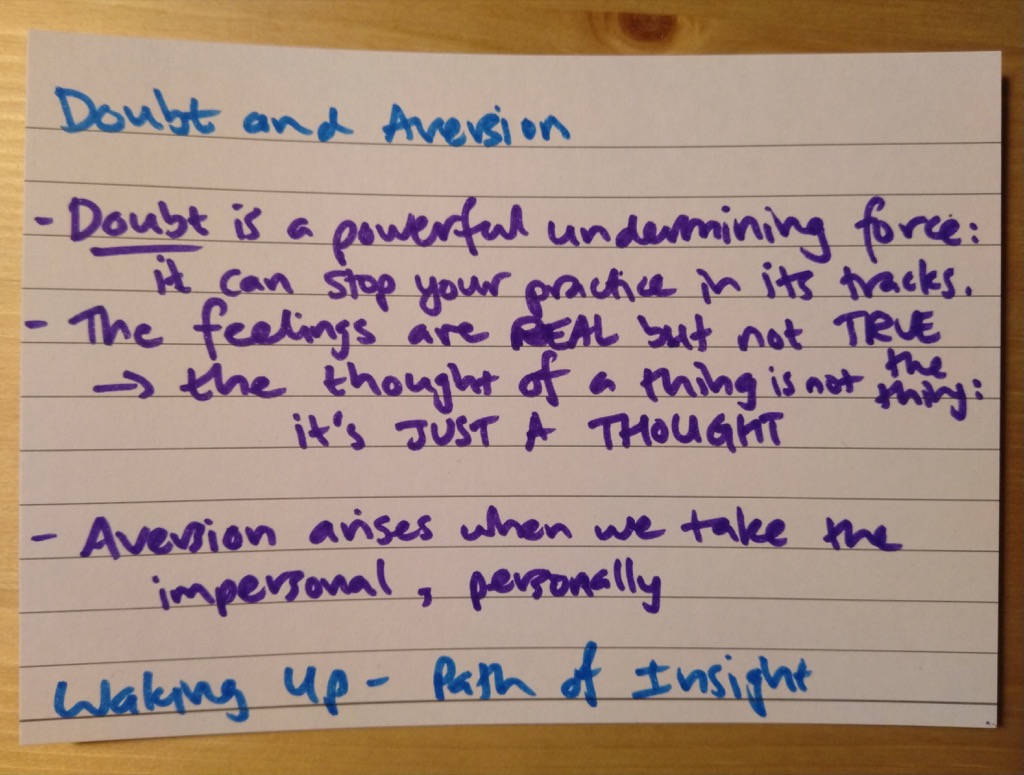 Doubt and Aversion
- Doubt is a powerful undermining force:
it can stop your practice in its tracks.
- The feelings are REAL but not TRUE
→ the thought of a thing is not the thing:
it's JUST A THOUGHT
- Aversion arises when we take the
impersonal, personally
Waking Up - Path of Insight